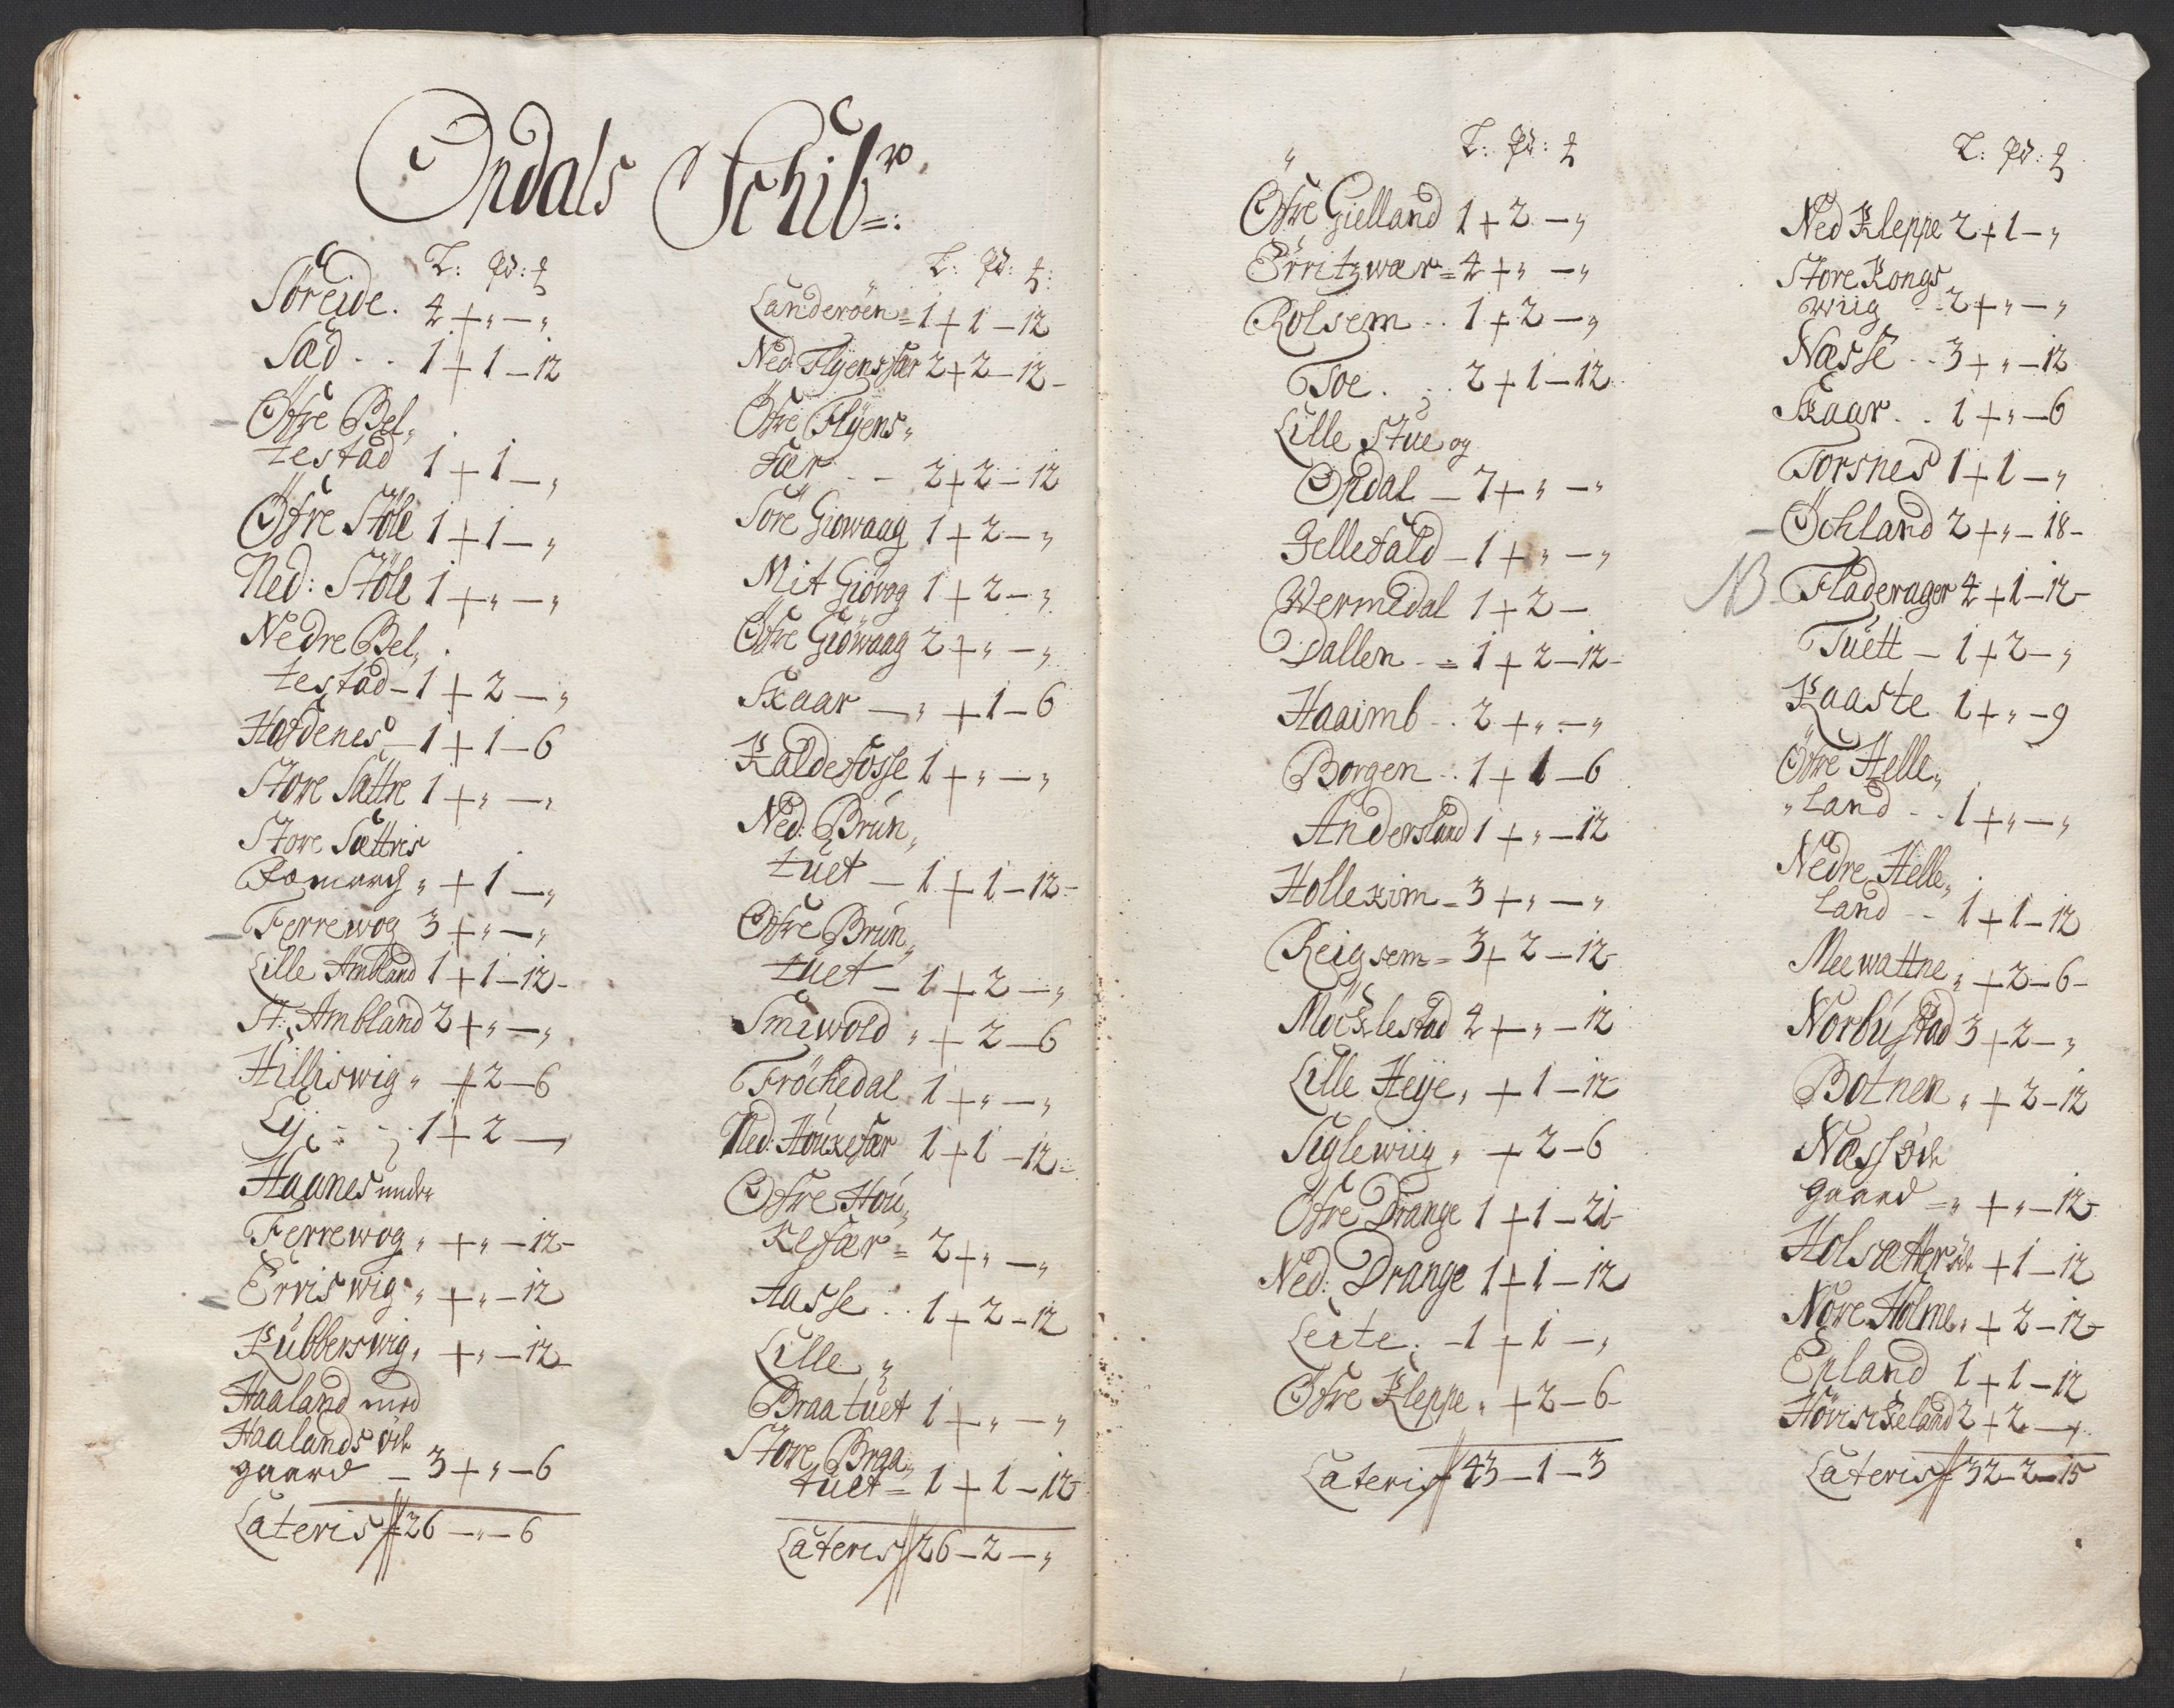 Opdals Schib:ro
L: Pd: ℔
Söreide. 4 + " — "
Sæd . . 1 + 1 — 12
Öfre Bel„
testad 1 + 1 — "
Öfre Stöle 1 + 1 — "
Ned: Stöle 1 + " — "
Nedre Bel„
testad — 1 + 2 — "
Hofdenes — 1 + 1 — 6
Store Sættre 1 + " — "
Store Sættris
Romarch " + 1 — "
Ferrewog 3 + " — "
Lille Ambland 1 + 1 — 12 -
St: Ambland 2 + " — "
Hilliswig " + 2 — 6
Lij - - 1 + 2 — "
Haanes under
Ferrewog " + " — 12 -
Erviswig " + " — 12
Kubberswig " + " — 12
Haaland med
Haalands öde
gaard — 3 + " — 6
Lateris 26 — " — 6
L: Pd: ℔:
Landeröen = 1 + 1 — 12
Ned: Flyensfær 2 + 2 — 12 -
Öfre Flyens„
fær - - 2 + 2 — 12
Söre Giowaag 1 + 2 — "
Mit Giövog 1 + 2 — "
Öfre Giöwaag 2 + " — "
Skaar — " + 1 — 6
Kaldefosse 1 + " — "
Ned: Brun„
tuet — 1 + 1 — 12 -
Öfre Brun„
tuet — 1 + 2 — "
Smiwold " + 2 — 6
Fröchedal 1 + " — "
Ned: Houkefær 1 + 1 — 12 -
Öfre Hou„
kefær = 2 + " — "
Aasse . . 1 + 2 — 12
Lille „
Braatuet 1 + " — "
Store Braa„
tuet = 1 + 1 — 12
Lateris 26 — 2 — "
L: Pd: ℔
Öfre Gielland 1 + 2 — "
Örritzwær = 4 + " — "
Rolsem . . 1 + 2 — "
Toe . . 2 + 1 — 12
Lille Stue og
Opdal — 7 + " — "
Gellefald — 1 + " — "
Wermedal 1 + 2 —
Dallen - = 1 + 2 — 12 -
Haaimb . . 2 + " — "
Borgen . . 1 + 1 — 6
Andersland 1 + " — 12
Hollekim = 3 + " — "
Reigsem = 3 + 2 — 12
Möcklestad 4 + " — 12
Lille Heije " + 1 — 12
Siglewiig " + 2 — 6
Öfre Drange 1 + 1 — 21
Ned: Drange 1 + 1 — 12
Leite . — 1 + 1 — "
Öfre Kleppe " + 2 — 6
Lateris 43 — 1 — 3
L: Pd: ℔
Ned Kleppe 2 + 1 — "
Store Kongs
wiig - - 2 + " — "
Næsse . . 3 + " — 12
Skaar . . 1 + " — 6
Torsnes 1 + 1 — "
Öchland 2 + " — 18 -
NB Fladerager 4 + 1 — 12 -
Tuett — 1 + 2 — "
Kaaste 1 + " — 9
Öfre Helle„
„land . . 1 + " — "
Nedre Helle„
land - - 1 + 1 — 12
Meewattne " + 2 — 6 -
Norbustad 3 + 2 — "
Botnen " + 2 — 12
Næss öde
gaard = " + " — 12
Holsætter öde + 1 — 12
Nore Holme " + 2 — 12
Epland 1 + 1 — 12
Hövischeland 2 + 2 — "
Lateris 32 — 2 — 15